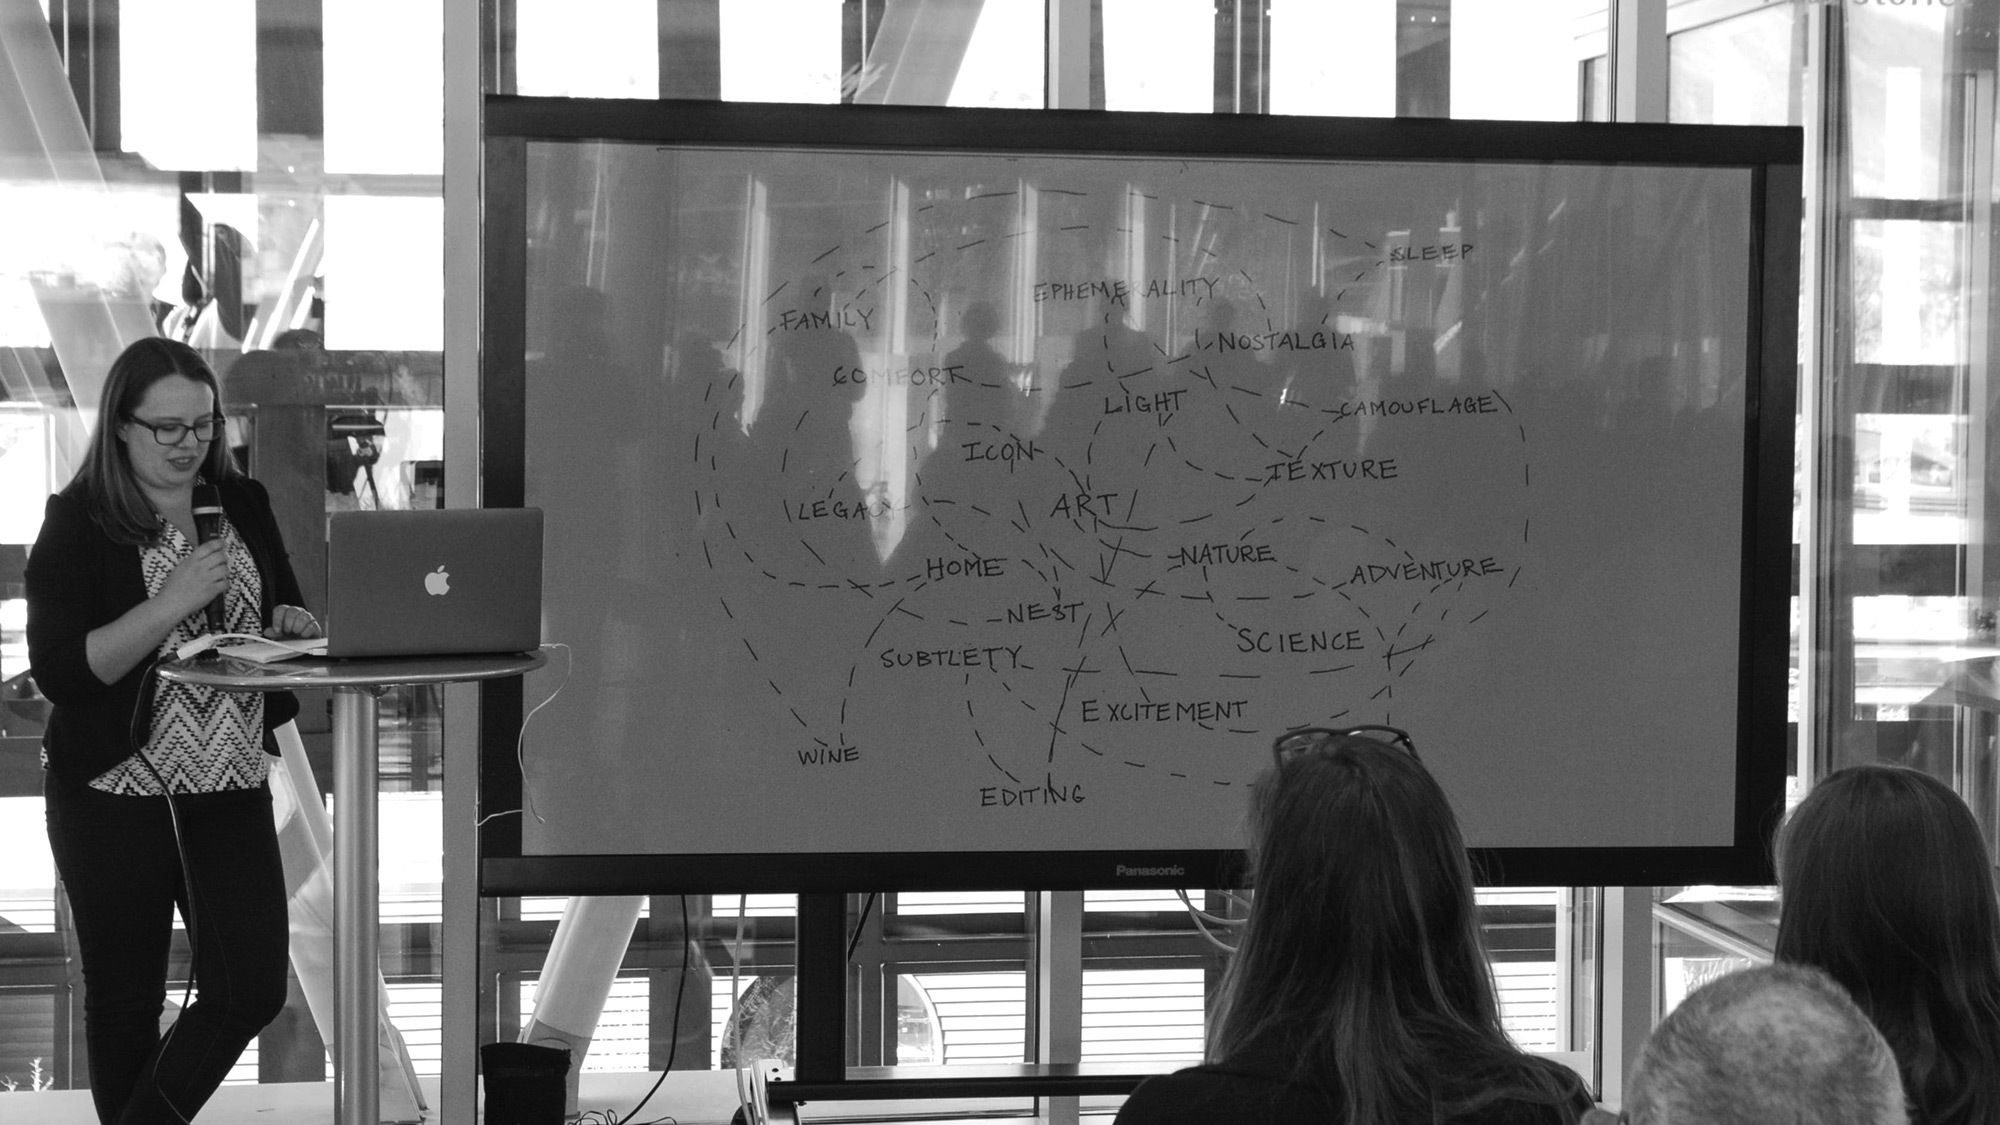 SLEEP
EPHEMERALITY
FAMILY
NOSTALGIA
COMFORT
LIGHT
CAMOUFLAGE
ICON
TEXTURE
LEGACY
ART
HOME
NATURE
ADVENTURE
NEST
SCIENCE
SUBTLETY
EXCITEMENT
WINE
EDITING
Panasonic